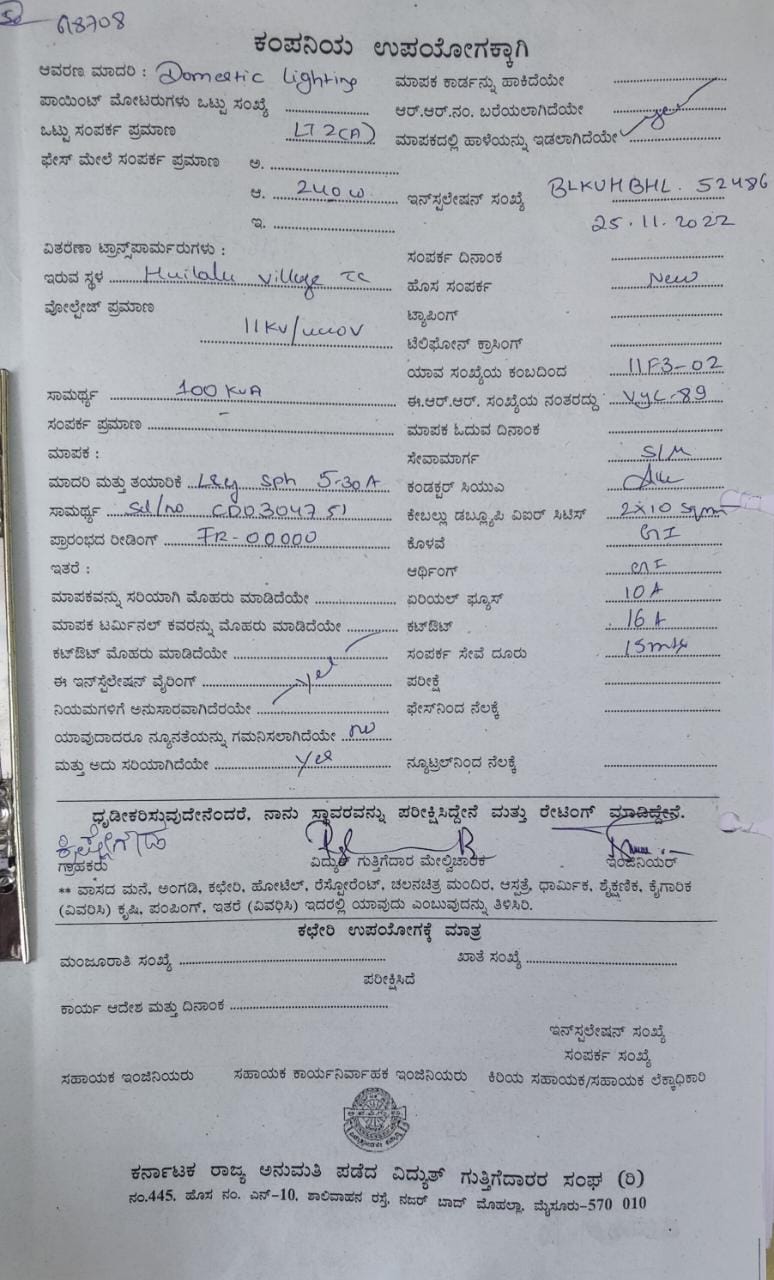 68708
ಕಂಪನಿಯ ಉಪಯೋಗಕ್ಕಾಗಿ
ಆವರಣ ಮಾದರಿ : Domestic Lighting ಮಾಪಕ ಕಾರ್ಡನ್ನು ಹಾಕಿದೆಯೇ
ಪಾಯಿಂಟ್ ಮೋಟರುಗಳು ಒಟ್ಟು ಸಂಖ್ಯೆ ಆರ್.ಆರ್.ನಂ. ಬರೆಯಲಾಗಿದೆಯೇ yes
ಒಟ್ಟು ಸಂಪರ್ಕ ಪ್ರಮಾಣ LT 2(A) ಮಾಪಕದಲ್ಲಿ ಹಾಳೆಯನ್ನು ಇಡಲಾಗಿದೆಯೇ
ಫೇಸ್ ಮೇಲೆ ಸಂಪರ್ಕ ಪ್ರಮಾಣ ಅ.
ಆ. 240 W ಇನ್‌ಸ್ಟಲೇಷನ್ ಸಂಖ್ಯೆ BLKVHBHL. 52486
ಇ. 25.11.2022
ವಿತರಣಾ ಟ್ರಾನ್ಸ್‌ಪಾರ್ಮರುಗಳು : ಸಂಪರ್ಕ ದಿನಾಂಕ
ಇರುವ ಸ್ಥಳ Huilalu village TC ಹೊಸ ಸಂಪರ್ಕ New
ವೋಲ್ಟೇಜ್ ಪ್ರಮಾಣ ಟ್ಯಾಪಿಂಗ್
11KV/440V ಟೆಲಿಫೋನ್ ಕ್ರಾಸಿಂಗ್
ಯಾವ ಸಂಖ್ಯೆಯ ಕಂಬದಿಂದ 11F3-02
ಸಾಮರ್ಥ್ಯ 100 KVA ಈ.ಆರ್.ಆರ್. ಸಂಖ್ಯೆಯ ನಂತರದ್ದು VYL-89
ಸಂಪರ್ಕ ಪ್ರಮಾಣ – ಮಾಪಕ ಓದುವ ದಿನಾಂಕ
ಮಾಪಕ : ಸೇವಾಮಾರ್ಗ S/M
ಮಾದರಿ ಮತ್ತು ತಯಾರಿಕೆ L&G Sph 5-30A ಕಂಡಕ್ಟರ್ ಸಿಯುಎ
ಸಾಮರ್ಥ್ಯ Sl/no CD0304751 ಕೇಬಲ್ಲು ಡಬ್ಲ್ಯೂಪಿ ವಿಐರ್ ಸಿಟಿಸ್ 2X10 Sqmm
ಪ್ರಾರಂಭದ ರೀಡಿಂಗ್ IR-00000 ಕೊಳವೆ GI
ಇತರೆ : ಆರ್ಥಿಂಗ್ GI
ಮಾಪಕವನ್ನು ಸರಿಯಾಗಿ ಮೊಹರು ಮಾಡಿದೆಯೇ ಏರಿಯಲ್ ಫ್ಯೂಸ್ 10 A
ಮಾಪಕ ಟರ್ಮಿನಲ್ ಕವರನ್ನು ಮೊಹರು ಮಾಡಿದೆಯೇ ಕಟ್‌ಔಟ್ 16 A
ಕಟ್‌ಔಟ್ ಮೊಹರು ಮಾಡಿದೆಯೇ ಸಂಪರ್ಕ ಸೇವೆ ದೂರು 15mtr
ಈ ಇನ್‌ಸ್ಟೆಲೇಷನ್ ವೈರಿಂಗ್ yes ಪರೀಕ್ಷೆ
ನಿಯಮಗಳಿಗೆ ಅನುಸಾರವಾಗಿದೆರಯೇ ಫೇಸ್‌ನಿಂದ ನೆಲಕ್ಕೆ
ಯಾವುದಾದರೂ ನ್ಯೂನತೆಯನ್ನು ಗಮನಿಸಲಾಗಿದೆಯೇ no
ಮತ್ತು ಅದು ಸರಿಯಾಗಿದೆಯೇ yes ನ್ಯೂಟ್ರಲ್‌ನಿಂದ ನೆಲಕ್ಕೆ
ಧೃಡೀಕರಿಸುವುದೇನೆಂದರೆ, ನಾನು ಸ್ಥಾವರವನ್ನು ಪರೀಕ್ಷಿಸಿದ್ದೇನೆ ಮತ್ತು ರೇಟಿಂಗ್ ಮಾಡಿದ್ದೇನೆ.
ಗ್ರಾಹಕರು ವಿದ್ಯುತ್ ಗುತ್ತಿಗೆದಾರ ಮೇಲ್ವಿಚಾರಕ ಇಂಜಿನಿಯರ್
** ವಾಸದ ಮನೆ, ಅಂಗಡಿ, ಕಛೇರಿ, ಹೋಟೆಲ್, ರೆಸ್ಟೋರೆಂಟ್, ಚಲನಚಿತ್ರ ಮಂದಿರ, ಆಸ್ಪತ್ರೆ, ಧಾರ್ಮಿಕ, ಶೈಕ್ಷಣಿಕ, ಕೈಗಾರಿಕ
(ವಿವರಿಸಿ) ಕೃಷಿ, ಪಂಪಿಂಗ್, ಇತರೆ (ವಿವರಿಸಿ) ಇದರಲ್ಲಿ ಯಾವುದು ಎಂಬುವುದನ್ನು ತಿಳಿಸಿರಿ.
ಕಛೇರಿ ಉಪಯೋಗಕ್ಕೆ ಮಾತ್ರ
ಮಂಜೂರಾತಿ ಸಂಖ್ಯೆ ಖಾತೆ ಸಂಖ್ಯೆ
ಪರೀಕ್ಷಿಸಿದೆ
ಕಾರ್ಯ ಆದೇಶ ಮತ್ತು ದಿನಾಂಕ
ಇನ್‌ಸ್ಟಲೇಷನ್ ಸಂಖ್ಯೆ
ಸಂಪರ್ಕ ಸಂಖ್ಯೆ
ಸಹಾಯಕ ಇಂಜಿನಿಯರು ಸಹಾಯಕ ಕಾರ್ಯನಿರ್ವಾಹಕ ಇಂಜಿನಿಯರು ಕಿರಿಯ ಸಹಾಯಕ/ಸಹಾಯಕ ಲೆಕ್ಕಾಧಿಕಾರಿ
ಕರ್ನಾಟಕ ರಾಜ್ಯ ಅನುಮತಿ ಪಡೆದ ವಿದ್ಯುತ್ ಗುತ್ತಿಗೆದಾರರ ಸಂಘ (ರಿ)
ನಂ.445, ಹೊಸ ನಂ. ಎನ್-10, ಶಾಲಿವಾಹನ ರಸ್ತೆ, ನಜರ್ ಬಾದ್ ಮೊಹಲ್ಲಾ, ಮೈಸೂರು-570 010